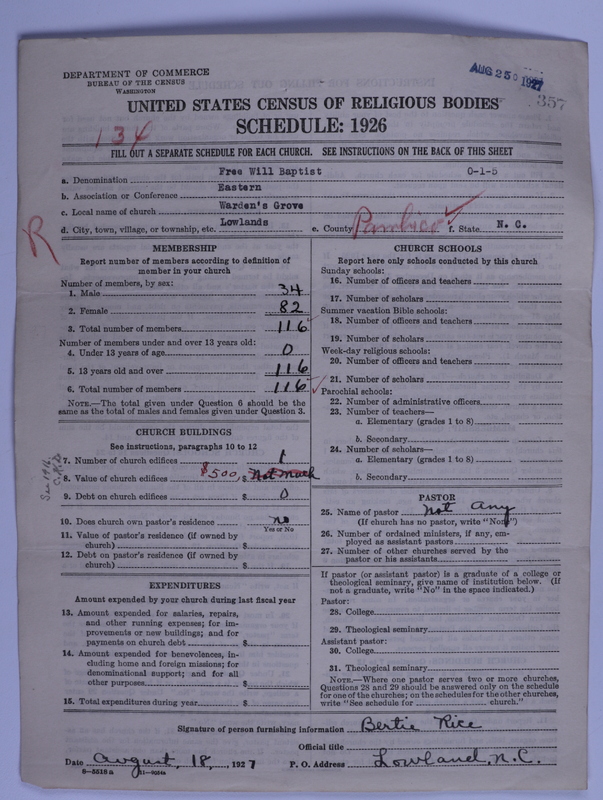 DEPARTMENT OF COMMERCE
BUREAU OF THE CENSUS
WASHINGTON
AUG 25 1927
357
UNITED STATES CENSUS OF RELIGIOUS BODIES
SCHEDULE: 1926
134
FILL OUT A SEPARATE SCHEDULE FOR EACH CHURCH. SEE INSTRUCTIONS ON THE BACK OF THIS SHEET
a. Denomination Free Will Baptist 0-1-5
b. Association or Conference Eastern
c. Local name of church Warden's Grove
d. City, town, village, or township, etc. Lowlands e. County Pamlico f. State N. C.
R
MEMBERSHIP
Report number of members according to definition of
member in your church
Number of members, by sex:
1. Male 34
2. Female 82
3. Total number of members 116
Number of members under and over 13 years old:
4. Under 13 years of age 0
5. 13 years old and over 116
6. Total number of members 116
NOTE.—The total given under Question 6 should be the
same as the total of males and females given under Question 3.
CHURCH BUILDINGS
See instructions, paragraphs 10 to 12
7. Number of church edifices 1
8. Value of church edifices $500, $ Not much
9. Debt on church edifices $ 0
See 1916
10. Does church own pastor's residence no
Yes or No
11. Value of pastor's residence (if owned by
church) $
12. Debt on pastor's residence (if owned by
church) $
EXPENDITURES
Amount expended by your church during last fiscal year
13. Amount expended for salaries, repairs,
and other running expenses; for im-
provements or new buildings; and for
payments on church debt $
14. Amount expended for benevolences, in-
cluding home and foreign missions; for
denominational support; and for all
other purposes $
15. Total expenditures during year $
CHURCH SCHOOLS
Report here only schools conducted by this church
Sunday schools:
16. Number of officers and teachers
17. Number of scholars
Summer vacation Bible schools:
18. Number of officers and teachers
19. Number of scholars
Week-day religious schools:
20. Number of officers and teachers
21. Number of scholars
Parochial schools:
22. Number of administrative officers
23. Number of teachers—
a. Elementary (grades 1 to 8)
b. Secondary
24. Number of scholars—
a. Elementary (grades 1 to 8)
b. Secondary
PASTOR
25. Name of pastor not any
(If church has no pastor, write "None")
26. Number of ordained ministers, if any, em-
ployed as assistant pastors
27. Number of other churches served by the
pastor or his assistants
If pastor (or assistant pastor) is a graduate of a college or
theological seminary, give name of institution below. (If
not a graduate, write "No" in the space indicated.)
Pastor:
28. College
29. Theological seminary
Assistant pastor:
30. College
31. Theological seminary
NOTE.—Where one pastor serves two or more churches,
Questions 28 and 29 should be answered only on the schedule
for one of the churches; on the schedules for the other churches,
write "See schedule for church."
Signature of person furnishing information Bertie Rice
Official title
Date August, 18, 1927 P. O. Address Lowland, N.C.
8—5518a 11—9034a